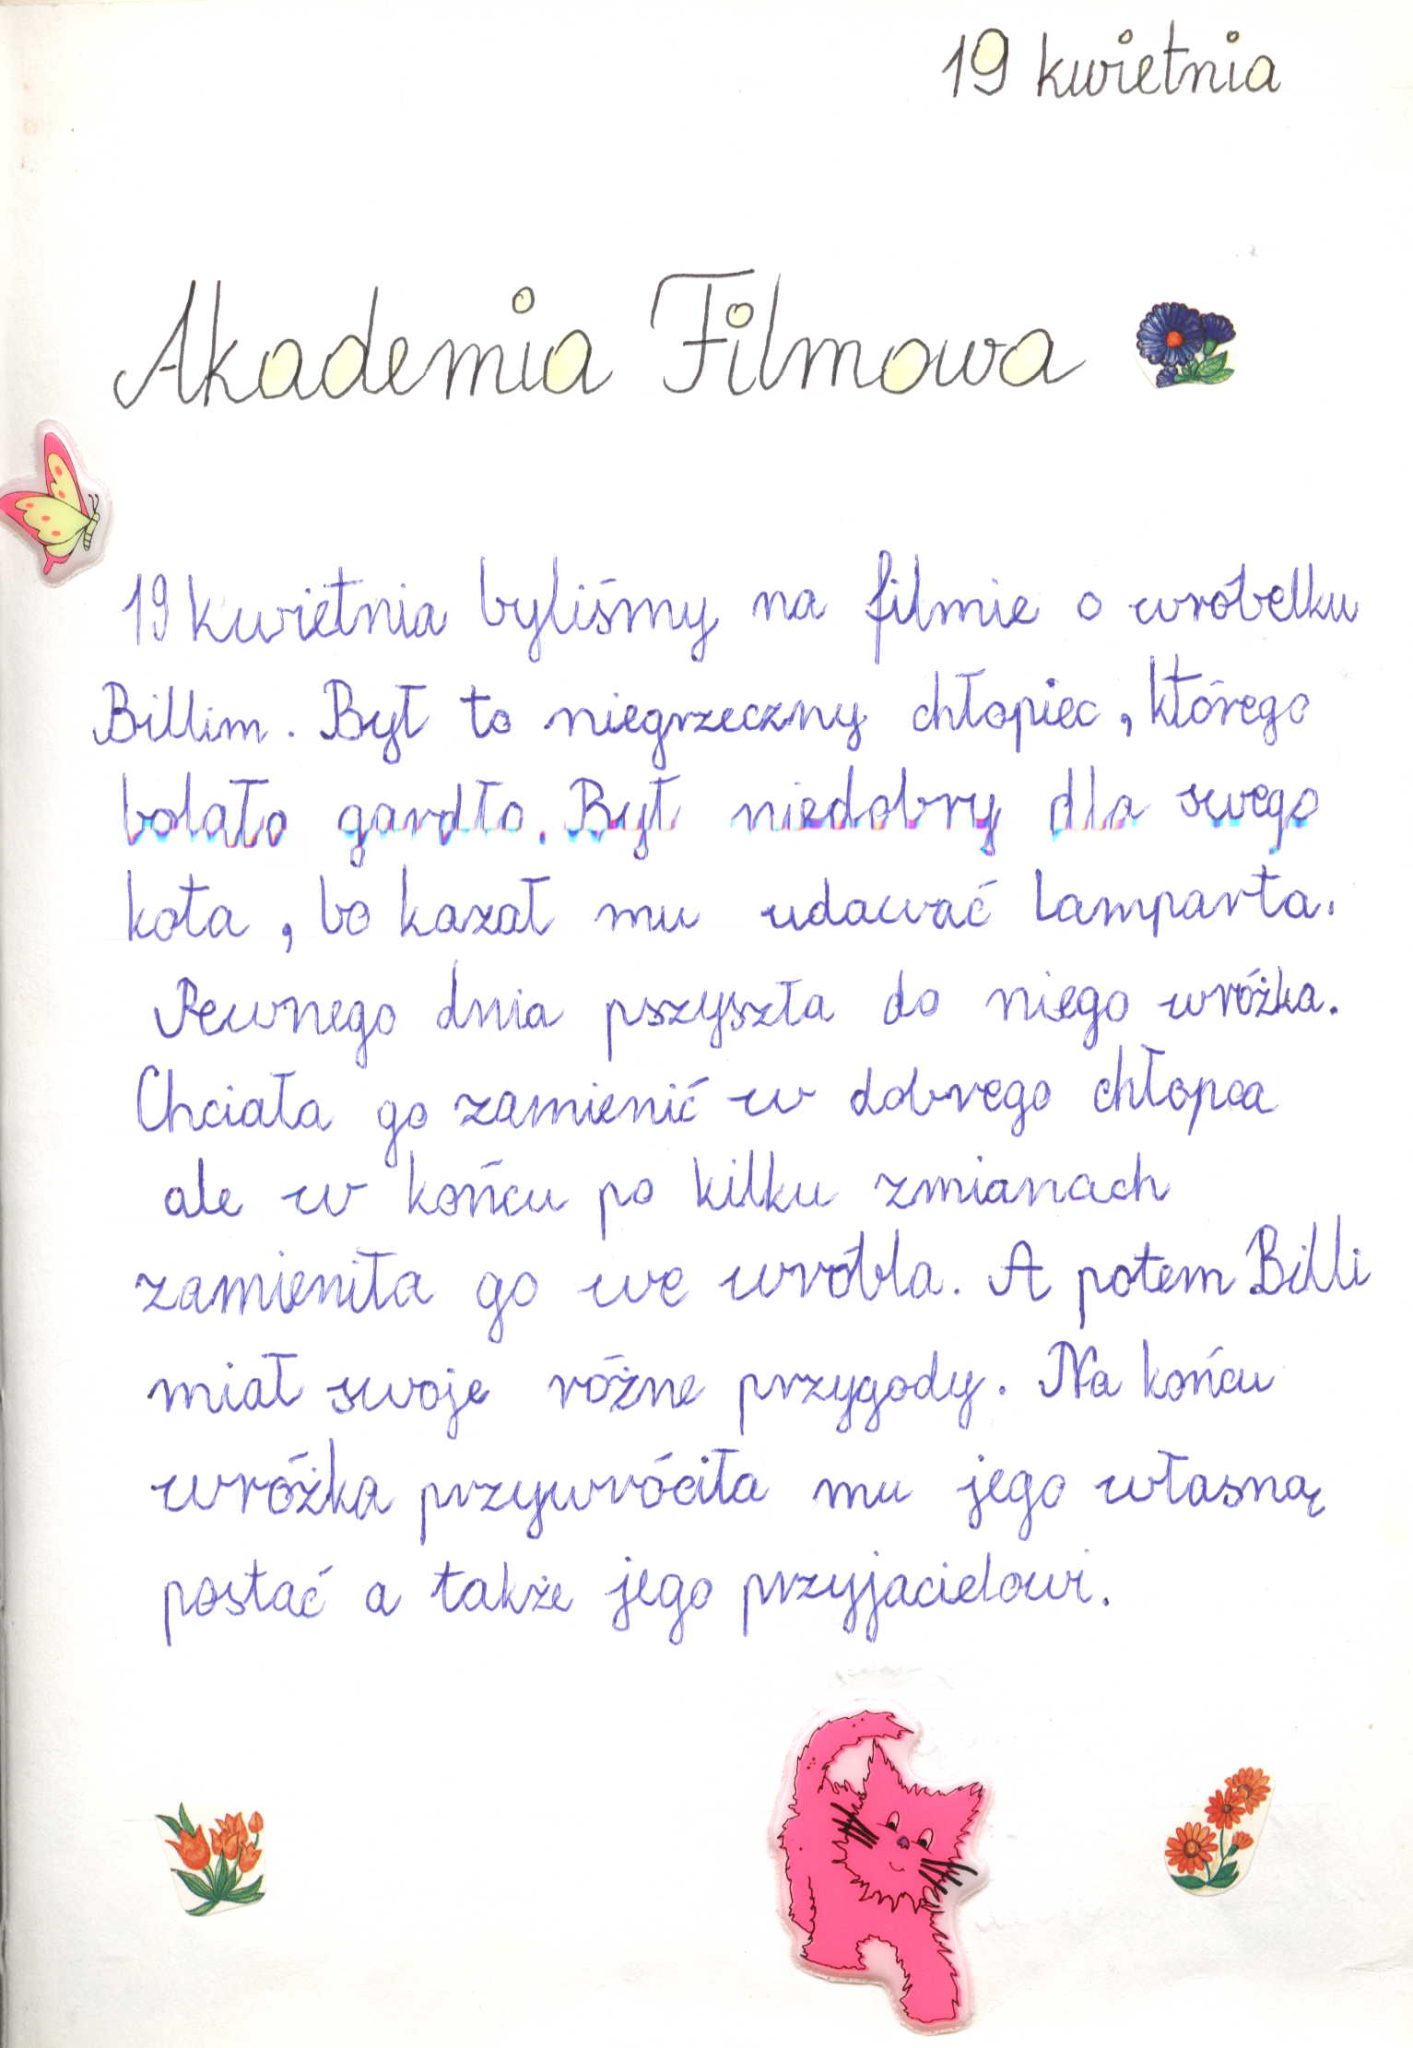 19 kwietnia
Akademia Filmowa
19 kwietnia byliśmy na filmie o wróbelku
Billim. Był to niegrzeczny chłopiec, którego
bolało gardło. Był niedobry dla swego
kota, bo kazał mu udawać Lamparta.
Pewnego dnia pszyszła do niego wróżka.
Chciała go zamienić w dobrego chłopca
ale w końcu po kilku zmianach
zamieniła go we wróbla. A potem Billi
miał swoje różne przygody. Na końcu
wróżka przywróciła mu jego własną
postać a także jego przyjacielowi.